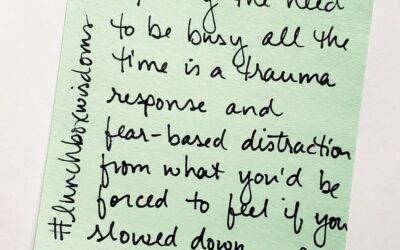 the need
to be busy all the
time is a trauma
response and
fear-based distraction
from what you'd be
forced to feel if you
slowed down
#lunchboxwisdoms